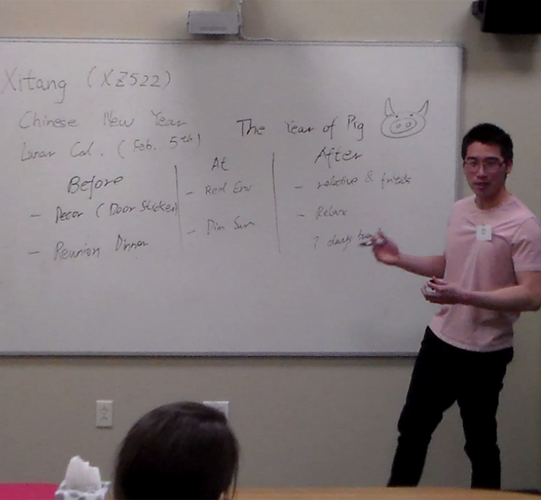 Xitang (XZ522)
Chinese New Year
Lunar Cal. (Feb. 5th)
The Year of Pig
Before
- Decor (Door Sticker)
- Reunion Dinner
At
- Red Env
- Dim Sum
After
- relative & friends
- Relax
7 days